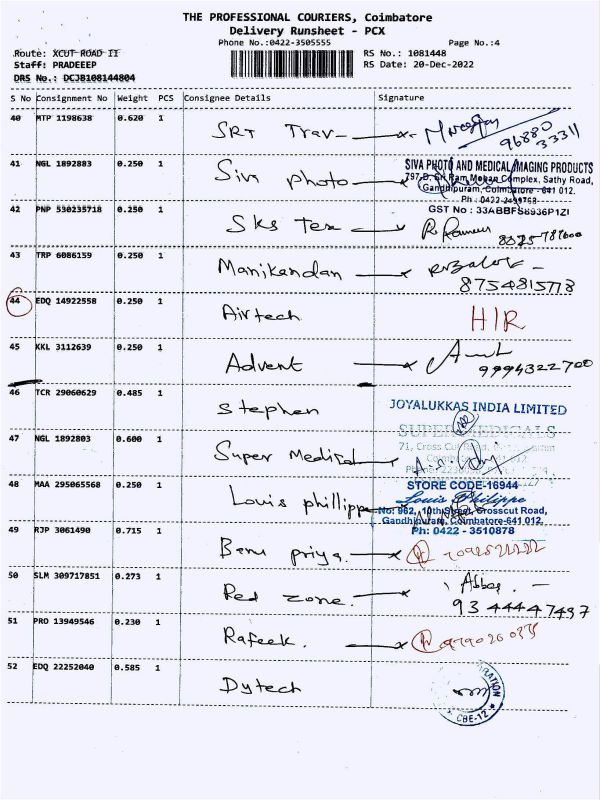 THE PROFESSIONAL COURIERS, Coimbatore
Delivery Runsheet - PCX
Phone No.:0422-3505555
Page No.:4
Route: XCUT ROAD II
RS No.: 1081448
Staff: PRADEEEP
RS Date: 20-Dec-2022
DRS No.: DCJB108144804
S No Consignment No Weight PCS Consignee Details Signature
40 MTP 1198638 0.620 1 SRT Trav
96880
33311
41 NGL 1892883 0.250 1 Siva photo
SIVA PHOTO AND MEDICAL IMAGING PRODUCTS
797-D, Sri Ram Mohan Complex, Sathy Road,
Gandhipuram, Coimbatore - 641 012.
Ph : 0422-2499768
GST No : 33ABBFS8936P1ZI
42 PNP 530235718 0.250 1 SKS Tex
43 TRP 6086159 0.250 1 Manikandan
8754815778
44 EDQ 14922558 0.250 1 Airtech H/R
45 KKL 3112639 0.250 1 Advent
9994322700
46 TCR 29060629 0.485 1 Stephen
JOYALUKKAS INDIA LIMITED
47 NGL 1892803 0.600 1 Super Medical
SUPER MEDICALS
71, Cross Cut
48 MAA 295065568 0.250 1 Louis phillippe
STORE CODE-16944
Louis Philippe
No: 962, 10th Street, Crosscut Road,
Gandhipuram, Coimbatore-641 012.
Ph: 0422 - 3510878
49 RJP 3061490 0.715 1 Banu priya.
50 SLM 309717851 0.273 1 Red zone. Abbas
93 44447497
51 PRO 13949546 0.230 1 Rafeek.
52 EDQ 22252040 0.585 1 Dytech
CBE-12